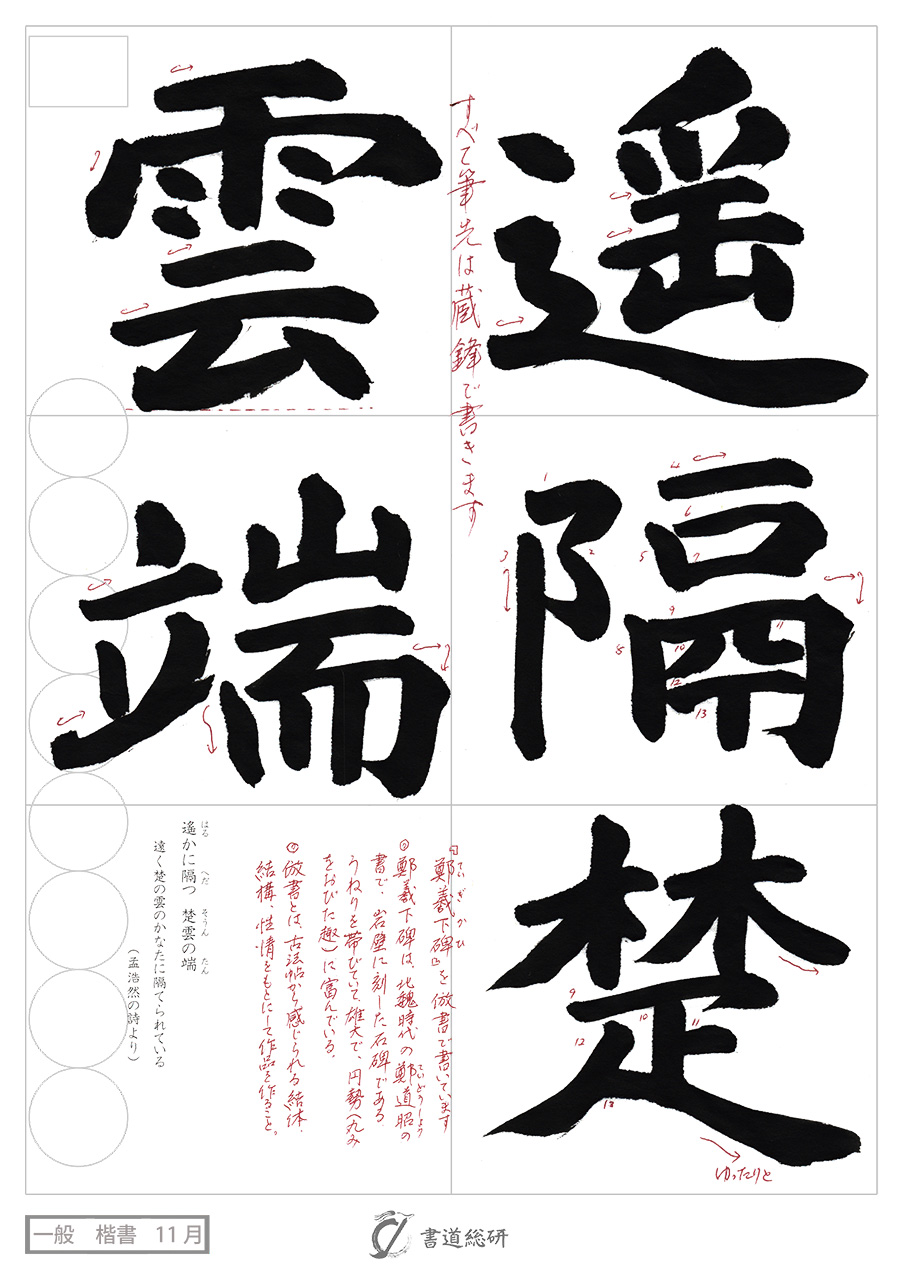 遥隔楚
雲端
すべて筆先は蔵鋒で書きます
「鄭羲下碑」を倣書で書いています
ていぎかひ
◎鄭羲下碑は、北魏時代の鄭道昭の
ていどうしょう
書で、岩壁に刻した石碑である。
うねりを帯びていて、雄大で、円勢(丸み
をおびた趣)に富んでいる。
◎倣書とは、古法帖から感じられる結体、
結構、性情をもとにして作品を作ること。
遙かに隔つ 楚雲の端
はる へだ そうん たん
遠く楚の雲のかなたに隔てられている
(孟浩然の詩より)
1
2
3
4
5
6
7
8
9
10
11
12
13
9
10
11
12
13
ゆったりと
一般 楷書 11月
書道総研